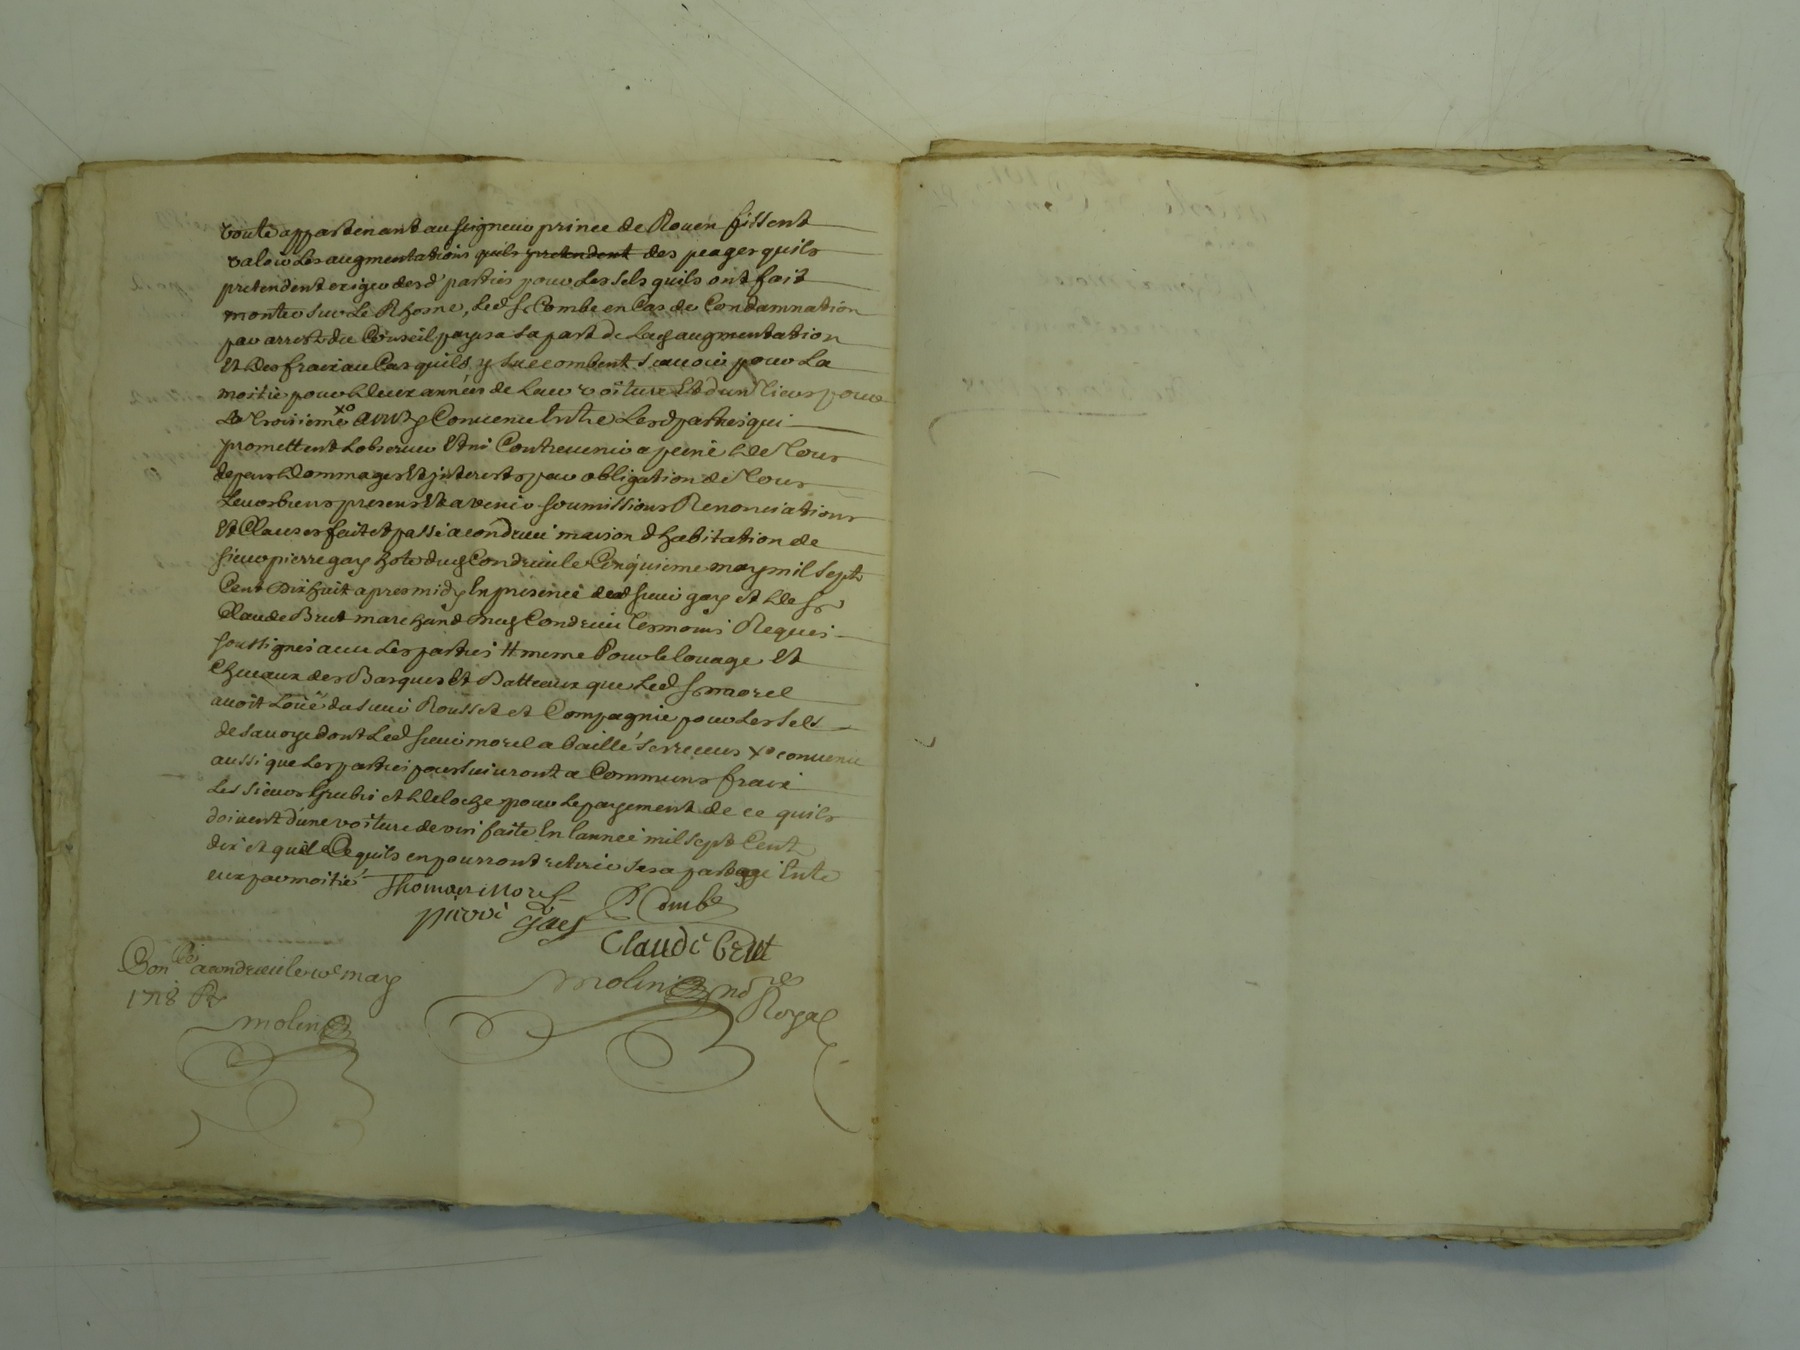 voute appartenant au seigneur prince de Rouen fissent
valoir les augmentations quils pretendent des peages quils
pretendent exiger desd parties pour les sels quils ont fait
monter sur le Rhosne, led sr Combe en Cas de Condamnation
par arrest du Conseil payera sa part de lad augmentation
Et des fraix au Cas quils y succombent scauoir pour la
moitie pour deux années de leur voiture Et dun tiers pour
la troisieme xo ainsy Conuenu Entre lesd parties qui
promettent lobseruer Et ni Contreuenir a peine de tous
depens dommages Et interests par obligation de tous
leurs biens presens Et a venir soumissions Renonciations
Et Clauses fait et passé a condrieu maison dhabitation de
sieur pierre gay hote dud Condrieu le Cinquieme may mil sept
Cent Dix huit apres midy En presence dud sieur gay et de sr
Claude Brut marchand dud Condrieu temoins Requis
soussignes auec les parties # meme Pour le louage Et
Cheuaux des Barques Et Batteaux que led sr morel
auoit Loüé du sieur Rousset et Compagnie pour les sels
de sauoye dont led sieur morel a baillé ses receus xo conuenu
aussi que les parties poursuiuront a Communs fraix
les sieurs et deloche pour le payement de ce quils
doiuent d'une voiture de vin faite En lannée mil sept Cent
dix et que Ce quils en pourront retirer sera partagé Entre
eux par moitié
Thomas Morel
P Combe
pierre gay
Claude brut
Molin no re Royal
Con lé a condrieu le may
1718 R
Molin